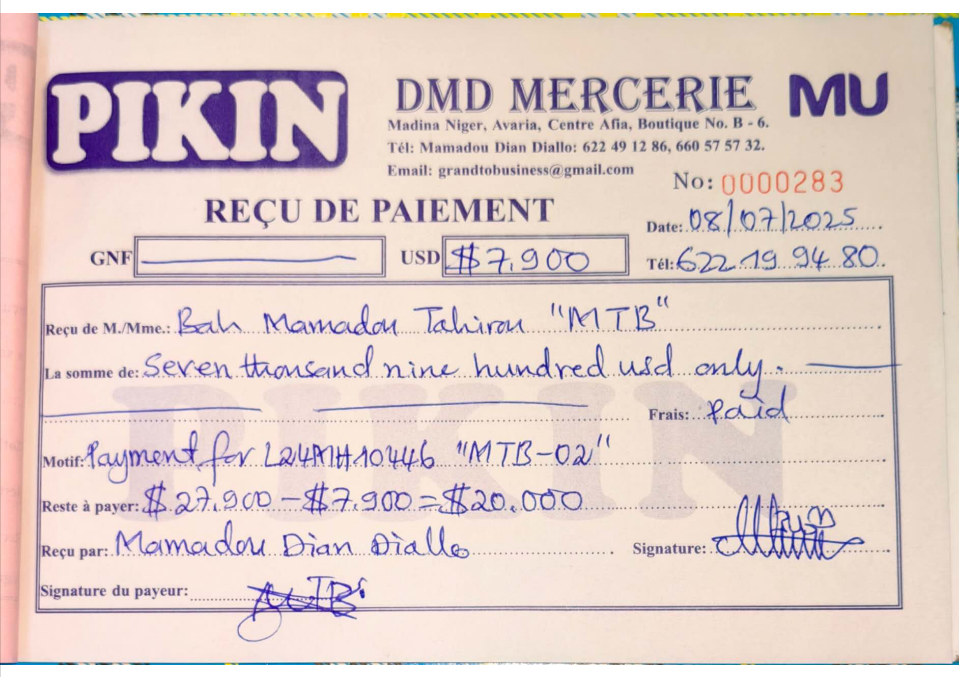 PIKIN
DMD MERCERIE MU
Madina Niger, Avaria, Centre Afia, Boutique No. B - 6.
Tél: Mamadou Dian Diallo: 622 49 12 86, 660 57 57 32.
Email: grandtobusiness@gmail.com
No: 0000283
REÇU DE PAIEMENT
Date: 08/07/2025
GNF USD $7.900
Tél: 622 19 94 80.
Reçu de M./Mme.: Bah Mamadou Tahirou "MTB"
La somme de: Seven thousand nine hundred usd only.
Frais: paid
Motif: Payment for L24MH10446 "MTB-02"
Reste à payer: $27.900 - $7.900 = $20.000
Reçu par: Mamadou Dian Diallo Signature:
Signature du payeur: MTB
PIKIN